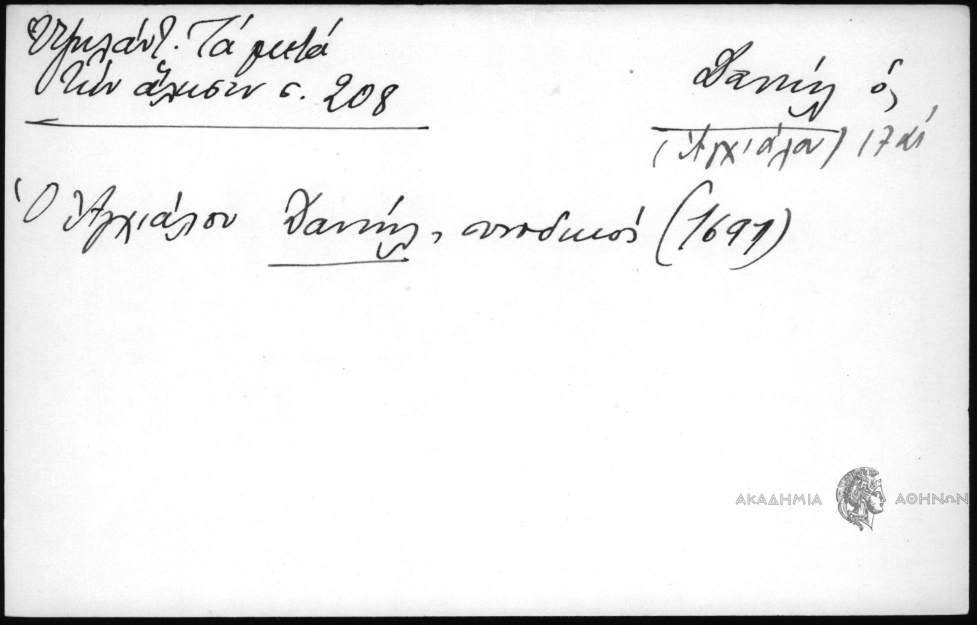 Ὑψηλάντ. Τά μετά
τήν ἅλωσιν σ. 208
Δανιήλ ὁ,
(Ἀγχιάλου) 17 αἰ
Ὁ Ἀγχιάλου Δανιήλ, συνοδικός (1691)
ΑΚΑΔΗΜΙΑ ΑΘΗΝΩΝ